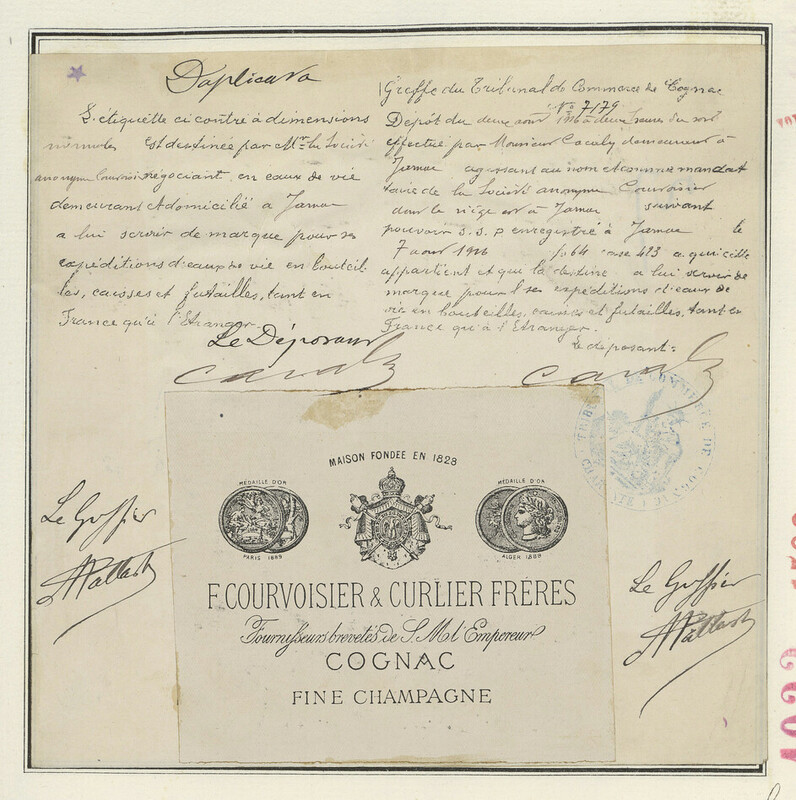 Duplicata
L'étiquette ci contre à dimensions
normales est destinée par Mr la Société
anonyme Courvoisier négociant en eaux de vie
demeurant et domicilié à Jarnac
a lui servir de marque pour ses
expéditions d'eaux de vie en bouteil
les, caisses et futailles, tant en
France qu'à l'Etranger.
Le Déposant
Greffe du Tribunal de Commerce de Cognac
No 7179
Dépôt du deux août à deux heures du soir
effectué par Monsieur demeurant à
Jarnac agissant au nom et comme mandat
taire de la Société anonyme Courvoisier
dont le siège est à Jarnac suivant
pouvoir s.s.p enregistré à Jarnac le
7 aout fo 64 case 413 a qui elle
appartient et que la destine a lui servir de
marque pour ses expéditions d'eaux de
vie en bouteilles, caisses et futailles, tant en
France qu'à l'Etranger.
Le déposant
TRIBUNAL DE COMMERCE DE COGNAC
MAISON FONDÉE EN 1828
MÉDAILLE D'OR
PARIS 1889
MÉDAILLE D'OR
ALGER 1889
F. COURVOISIER & CURLIER FRÉRES
Fournisseurs brevetés de S. M. l'Empereur
COGNAC
FINE CHAMPAGNE
Le Greffier
Le Greffier